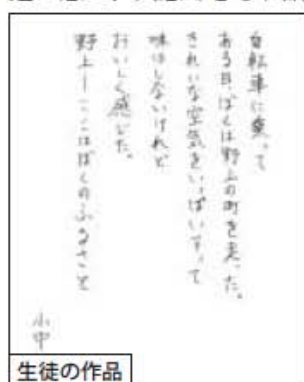 自転車に乗って
ある日、ぼくは野上の町を走った。
きれいな空気をいっぱいすって
味はしないけれど
おいしく感じた。
野上ー ここはぼくのふるさと
小中
生徒の作品